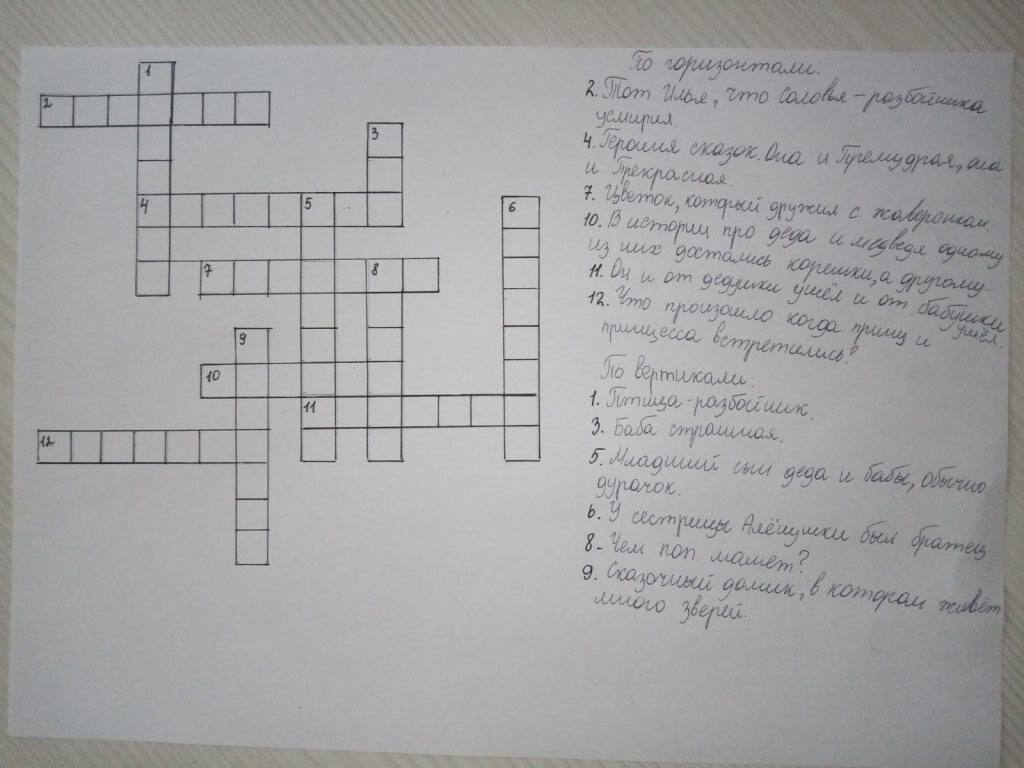 1
2
3
4
5
6
7
8
9
10
11
12
По горизонтали:
2. Тот Илья, что Соловья-разбойника
усмирил.
4. Героиня сказок. Она и Премудрая, она
и Прекрасная.
7. Цветок, который дружил с жаворонком.
10. В истории про деда и медведя одному
из них достались корешки, а другому...
11. Он и от дедушки ушёл и от бабушки
ушёл.
12. Что произошло когда принц и
принцесса встретились?
По вертикали:
1. Птица-разбойник.
3. Баба страшная.
5. Младший сын деда и бабы, обычно
дурачок.
6. У сестрицы Алёнушки был братец...
8. Чем поп
9. Сказочный домик, в котором живёт
много зверей.